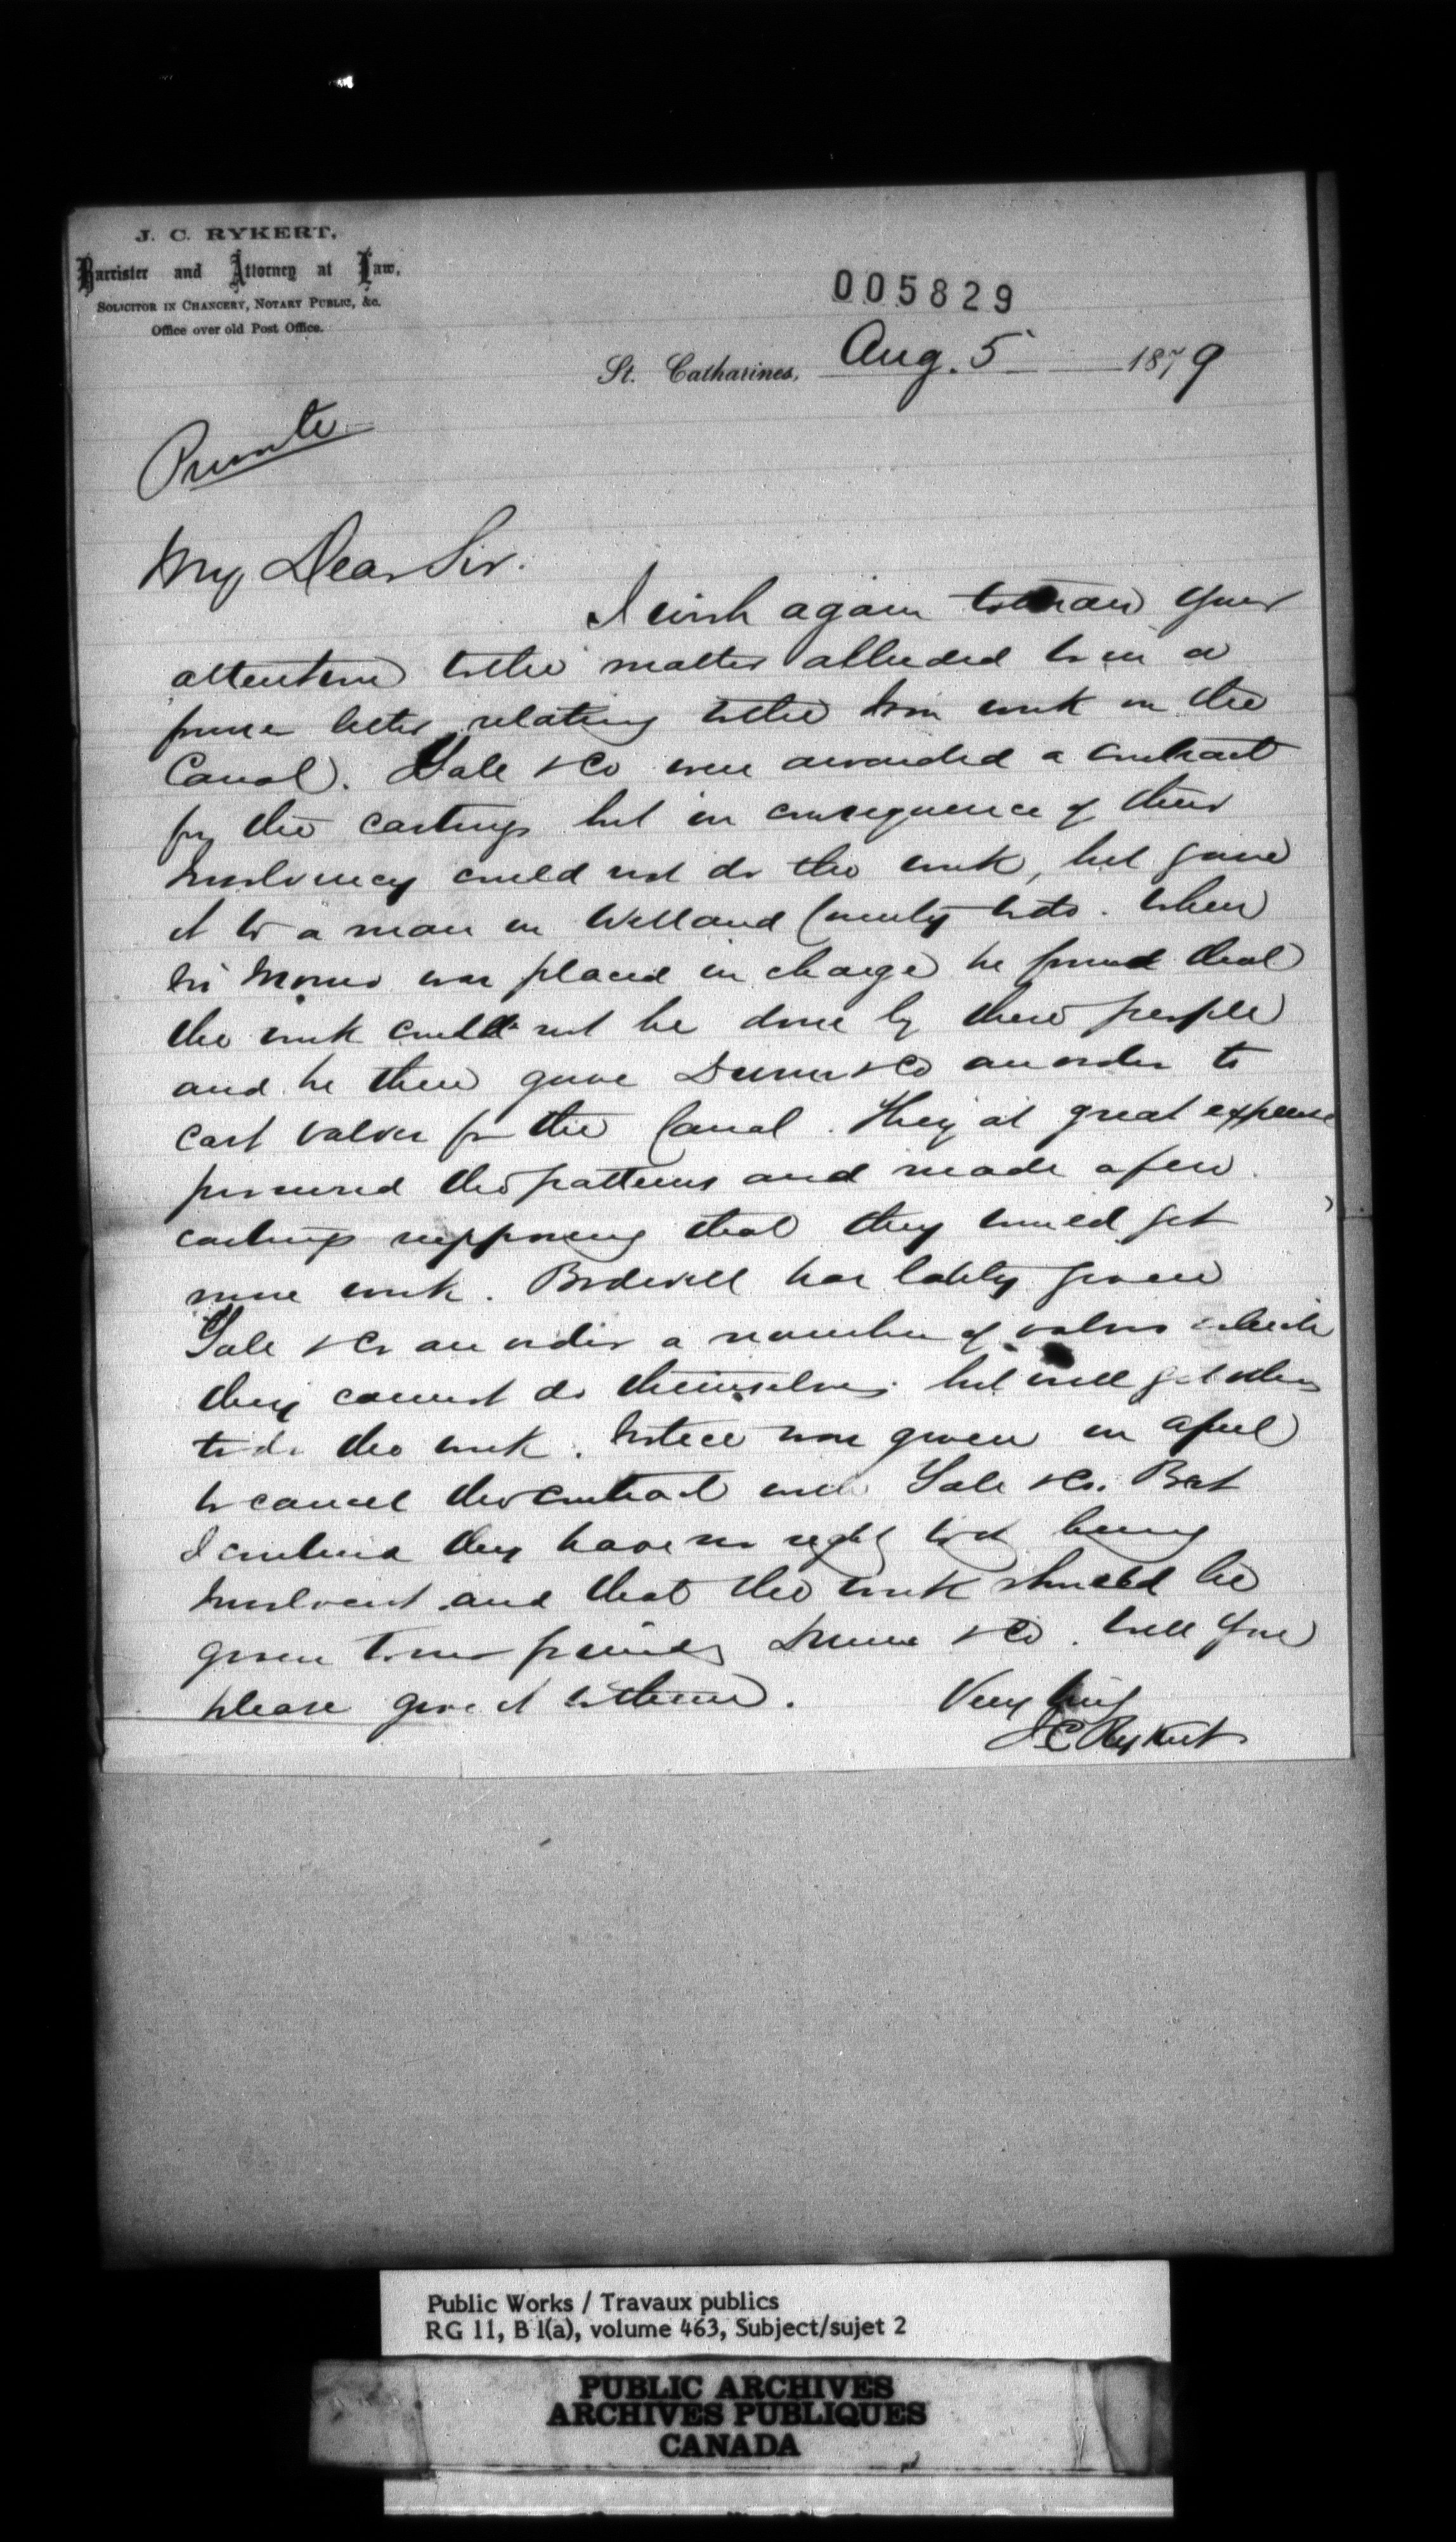 J. C. RYKERT,
Barrister and Attorney at Law,
SOLICITOR IN CHANCERY, NOTARY PUBLIC, &c.
Office over old Post Office.
005829
St. Catharines, Aug. 5 1879
Private
My Dear Sir.
I wish again to draw your
attention to the matter alluded to in a
former letter relating to the Iron work on the
Canal. Yale & Co were awarded a contract
for the castings but in consequence of their
Insolvency could not do the work, but gave
it to a man in Welland County to do. When
Mr Monro was placed in charge he found that
the work could not be done by these people
and he then gave Dunn & Co an order to
cast valves for the Canal. They at great expense
procured the patterns and made a few
castings supposing that they would get
more work. Bodwell has lately given
Yale & Co an order a number of valves which
they cannot do themselves but will get others
to do the work. Notice was given in April
to cancel the contract with Yale & Co. But
I contend they have no right to it being
Insolvent and that the work should be
given to our friends Dunn & Co. Will you
please give it to them.
Very truly
J C Rykert
Public Works / Travaux publics
RG 11, B 1(a), volume 463, Subject/sujet 2
PUBLIC ARCHIVES
ARCHIVES PUBLIQUES
CANADA